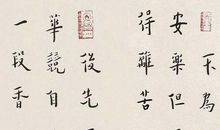 不為
安樂但
得離苦
後先
華競自
一段香